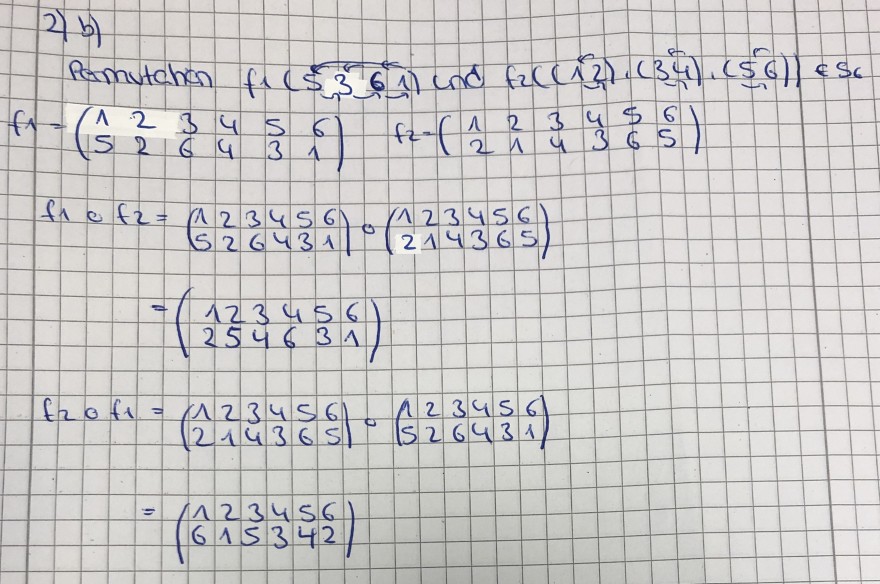 2) b)
Permutation f1 (5 3 6 1) und f2((12).(34).(56)) ∈ S6
f1 = (1 2 3 4 5 6) f2 = (1 2 3 4 5 6)
(5 2 6 4 3 1) (2 1 4 3 6 5)
f1 ∘ f2 = (1 2 3 4 5 6) ∘ (1 2 3 4 5 6)
(5 2 6 4 3 1) (2 1 4 3 6 5)
= (1 2 3 4 5 6)
(2 5 4 6 3 1)
f2 ∘ f1 = (1 2 3 4 5 6) ∘ (1 2 3 4 5 6)
(2 1 4 3 6 5) (5 2 6 4 3 1)
= (1 2 3 4 5 6)
(6 1 5 3 4 2)